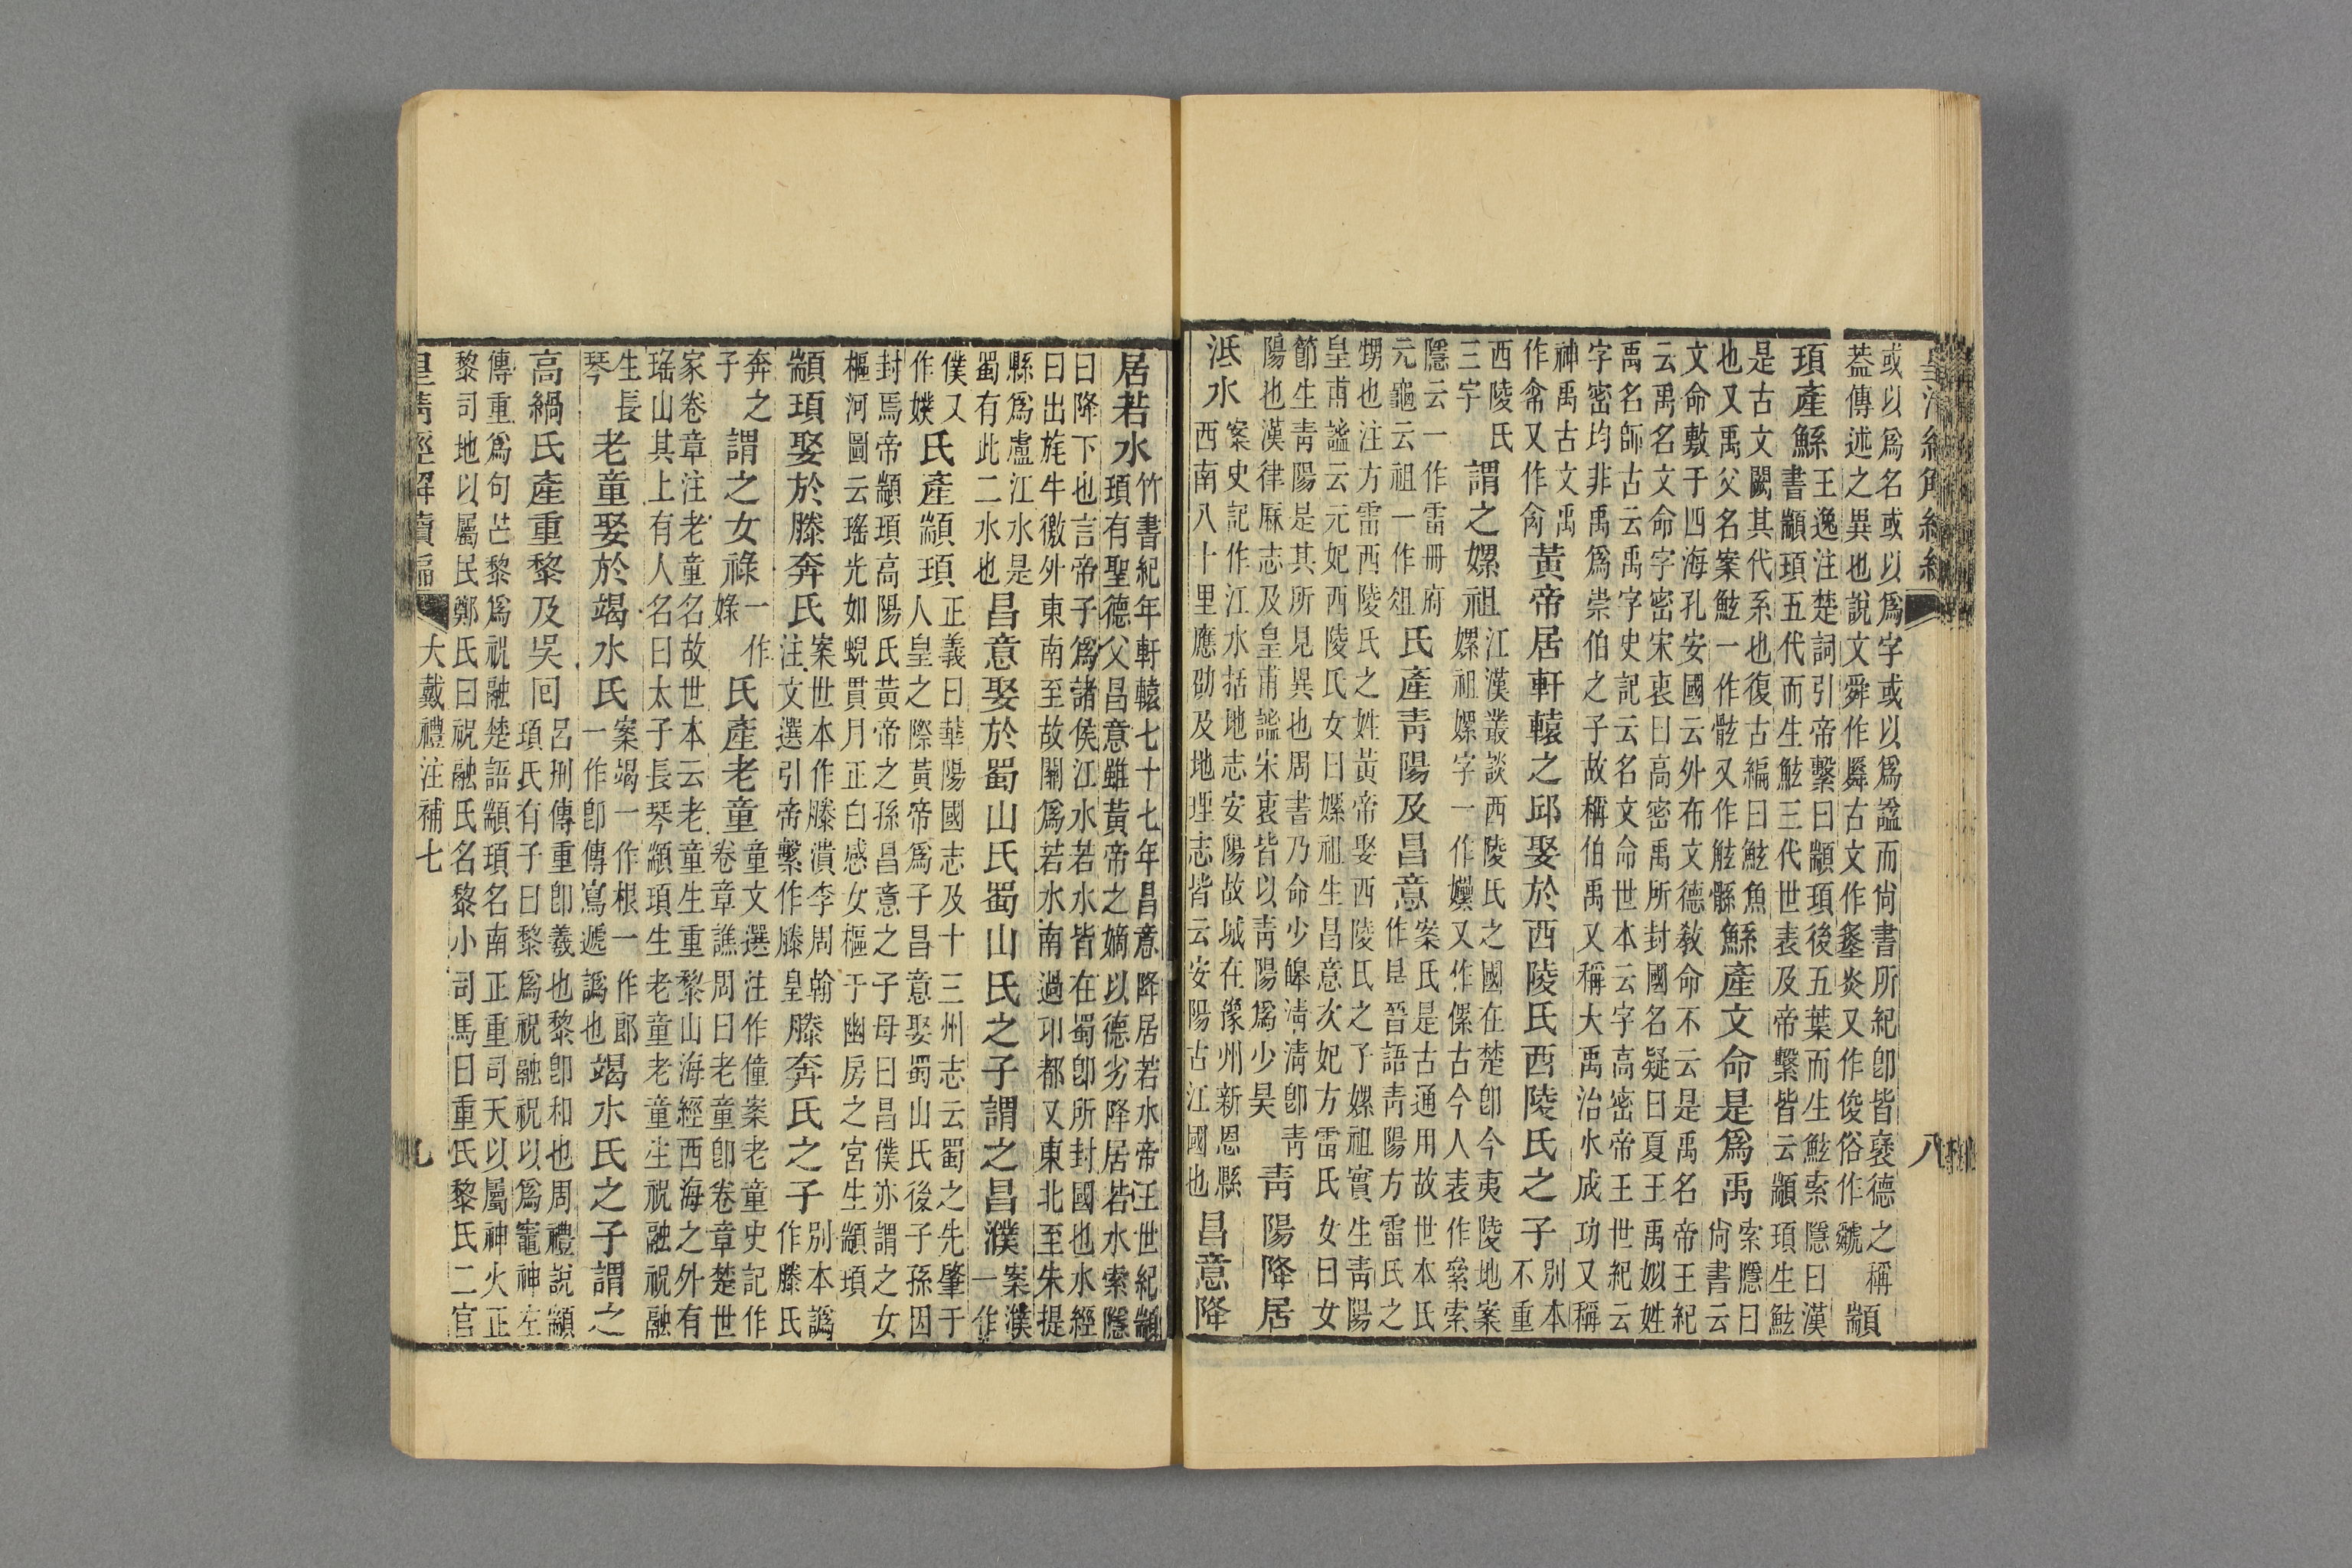 或以爲名或以爲字或以爲諡而尙書所紀卽皆襃德之稱
葢傳述之異也說文舜作䑞古文作炎又作俊俗作虩
顓
頊產鯀
王逸注楚詞引帝繫曰顓頊後五葉而生鮌索隱曰漢
書顓頊五代而生鮌三代世表及帝繫皆云顓頊生鮌
是古文闕其代系也復古編曰鮌魚
也又禹父名案鮌一作骸又作
鯀產文命是爲禹
索隱曰
尙書云
文命敷于四海孔安國云外布文德敎命不云是禹名帝王紀
云禹名文命字密宋衷曰高密禹所封國名疑曰夏王禹姒姓
禹名師古云禹字史記云名文命世本云字高密帝王世紀云
字密均非禹爲崇伯之子故稱伯禹又稱大禹治水成功又稱
神禹古文禹
作又作
黃帝居軒轅之邱娶於西陵氏西陵氏之子
別本
不重
西陵氏
三字
謂之嫘祖
江漢叢談西陵氏之國在楚卽今夷陵地案
嫘祖嫘字一作又作傫古今人表作絫索
隱云一作雷冊府
元龜云祖一作俎
氏產靑陽及昌意
案氏是古通用故世本氏
作昰晉語靑陽方雷氏之
甥也注方雷西陵氏之姓黃帝娶西陵氏之子嫘祖實生靑陽
皇甫謐云元妃西陵氏女曰嫘祖生昌意次妃方雷氏女曰女
節生靑陽是其所見異也周書乃命少皞淸淸卽靑
陽也漢律厤志及皇甫謐宋衷皆以靑陽爲少昊
靑陽降居
泜水
案史記作江水括地志安陽故城在豫州新恩縣
西南八十里應劭及地理志皆云安陽古江國也
昌意降
八
居若水
竹書紀年軒轅七十七年昌意降居若水帝王世紀顓
頊有聖德父昌意雖黃帝之嫡以德劣降居若水索隱
曰降下也言帝子爲諸侯江水若水皆在蜀卽所封國也水經
曰出旄牛徼外東南至故關爲若水南過邛都又東北至朱提
縣爲盧江水是
蜀有此二水也
昌意娶於蜀山氏蜀山氏之子謂之昌濮
案濮
一作
僕又
作㜷
氏產顓頊
正義曰華陽國志及十三州志云蜀之先肇于
人皇之際黃帝爲子昌意娶蜀山氏後子孫因
封焉帝顓頊高陽氏黃帝之孫昌意之子母曰昌僕亦謂之女
樞河圖云瑤光如蜺貫月正白感女樞于幽房之宮生顓頊
顓頊娶於滕奔氏
案世本作滕濆李周翰
注文選引帝繫作滕皇
滕奔氏之子
別本譌
作滕氏
奔之
子
謂之女祿
一作
娽
氏產老童
童文選注作僮案老童史記作
卷章譙周曰老童卽卷章楚世
家卷章注老童名故世本云老童生重黎山海經西海之外有
瑤山其上有人名曰太子長琴顓頊生老童老童生祝融祝融
生長
琴
老童娶於竭水氏
案竭一作根一作郎
一作卽傳寫遞譌也
竭水氏之子謂之
高緺氏產重黎及吳囘
呂刑傳重卽羲也黎卽和也周禮說顓
頊氏有子曰黎爲祝融祝以爲竈神左
傳重爲句芒黎爲祝融楚語顓頊名南正重司天以屬神火正
黎司地以屬民鄭氏曰祝融氏名黎小司馬曰重氏黎氏二官
皇淸經解續編
大戴禮注補七
九